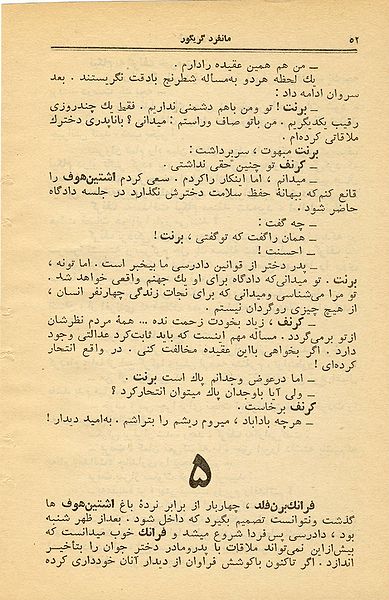 ۵۲ مانفرد گریگور
ــ من هم همین عقیده رادارم .
یك لحظه هردو بهمساله شطرنج بادقت نگریستند . بعد
سروان ادامه داد :
ــ برنت ! تو ومن باهم دشمنی نداریم . فقط یك چندروزی
رقیب یکدیگریم . من باتو صاف وراستم : میدانی ؟ باناپدری دخترك
ملاقاتی کرده‌ام .
برنت مبهوت ، سربرداشت :
ــ کرنف تو چنین حقی نداشتی .
ــ میدانم ، اما اینکار راکردم . سعی کردم اشتین‌هوف را
قانع کنم‌که ببهانهٔ حفظ سلامت دخترش نگذارد در جلسه دادگاه
حاضر شود .
ــ چه گفت :
ــ همان راگفت که توگفتی ، برنت !
ــ احسنت !
ــ پدر دختر از قوانین دادرسی ما بیخبر است . اما تونه ،
برنت . تو میدانی‌که دادگاه برای او یك جهنم واقعی خواهد شد .
تو مرا می‌شناسی ومیدانی که برای نجات زندگی چهارنفر انسان ،
از هیچ چیزی روگردان نیستم .
ــ کرنف ، زیاد بخودت زحمت نده ... همهٔ مردم نظرشان
ازتو برمی‌گردد . مسأله مهم اینست که باید ثابت‌کرد عدالتی وجود
دارد . اگر بخواهی بااین عقیده مخالفت کنی . در واقع انتحار
کرده‌ای !
ــ اما درعوض وجدانم پاك است برنت .
ــ ولی آیا باوجدان پاك میتوان انتحارکرد ؟
کرنف برخاست .
ــ هرچه باداباد ، میروم ریشم را بتراشم . به‌امید دیدار !
۵
فرانك‌برن‌فلد ، چهاربار از برابر نردهٔ باغ اشتین‌هوف ها
گذشت ونتوانست تصمیم بگیرد که داخل شود . بعداز ظهر شنبه
بود ، دادرسی پس‌فردا شروع میشد و فرانك خوب میدانست که
بیش‌ازاین نمی‌تواند ملاقات با پدرومادر دختر جوان را بتأخیر
اندازد . اگر تاکنون باکوشش فراوان از دیدار آنان خودداری کرده